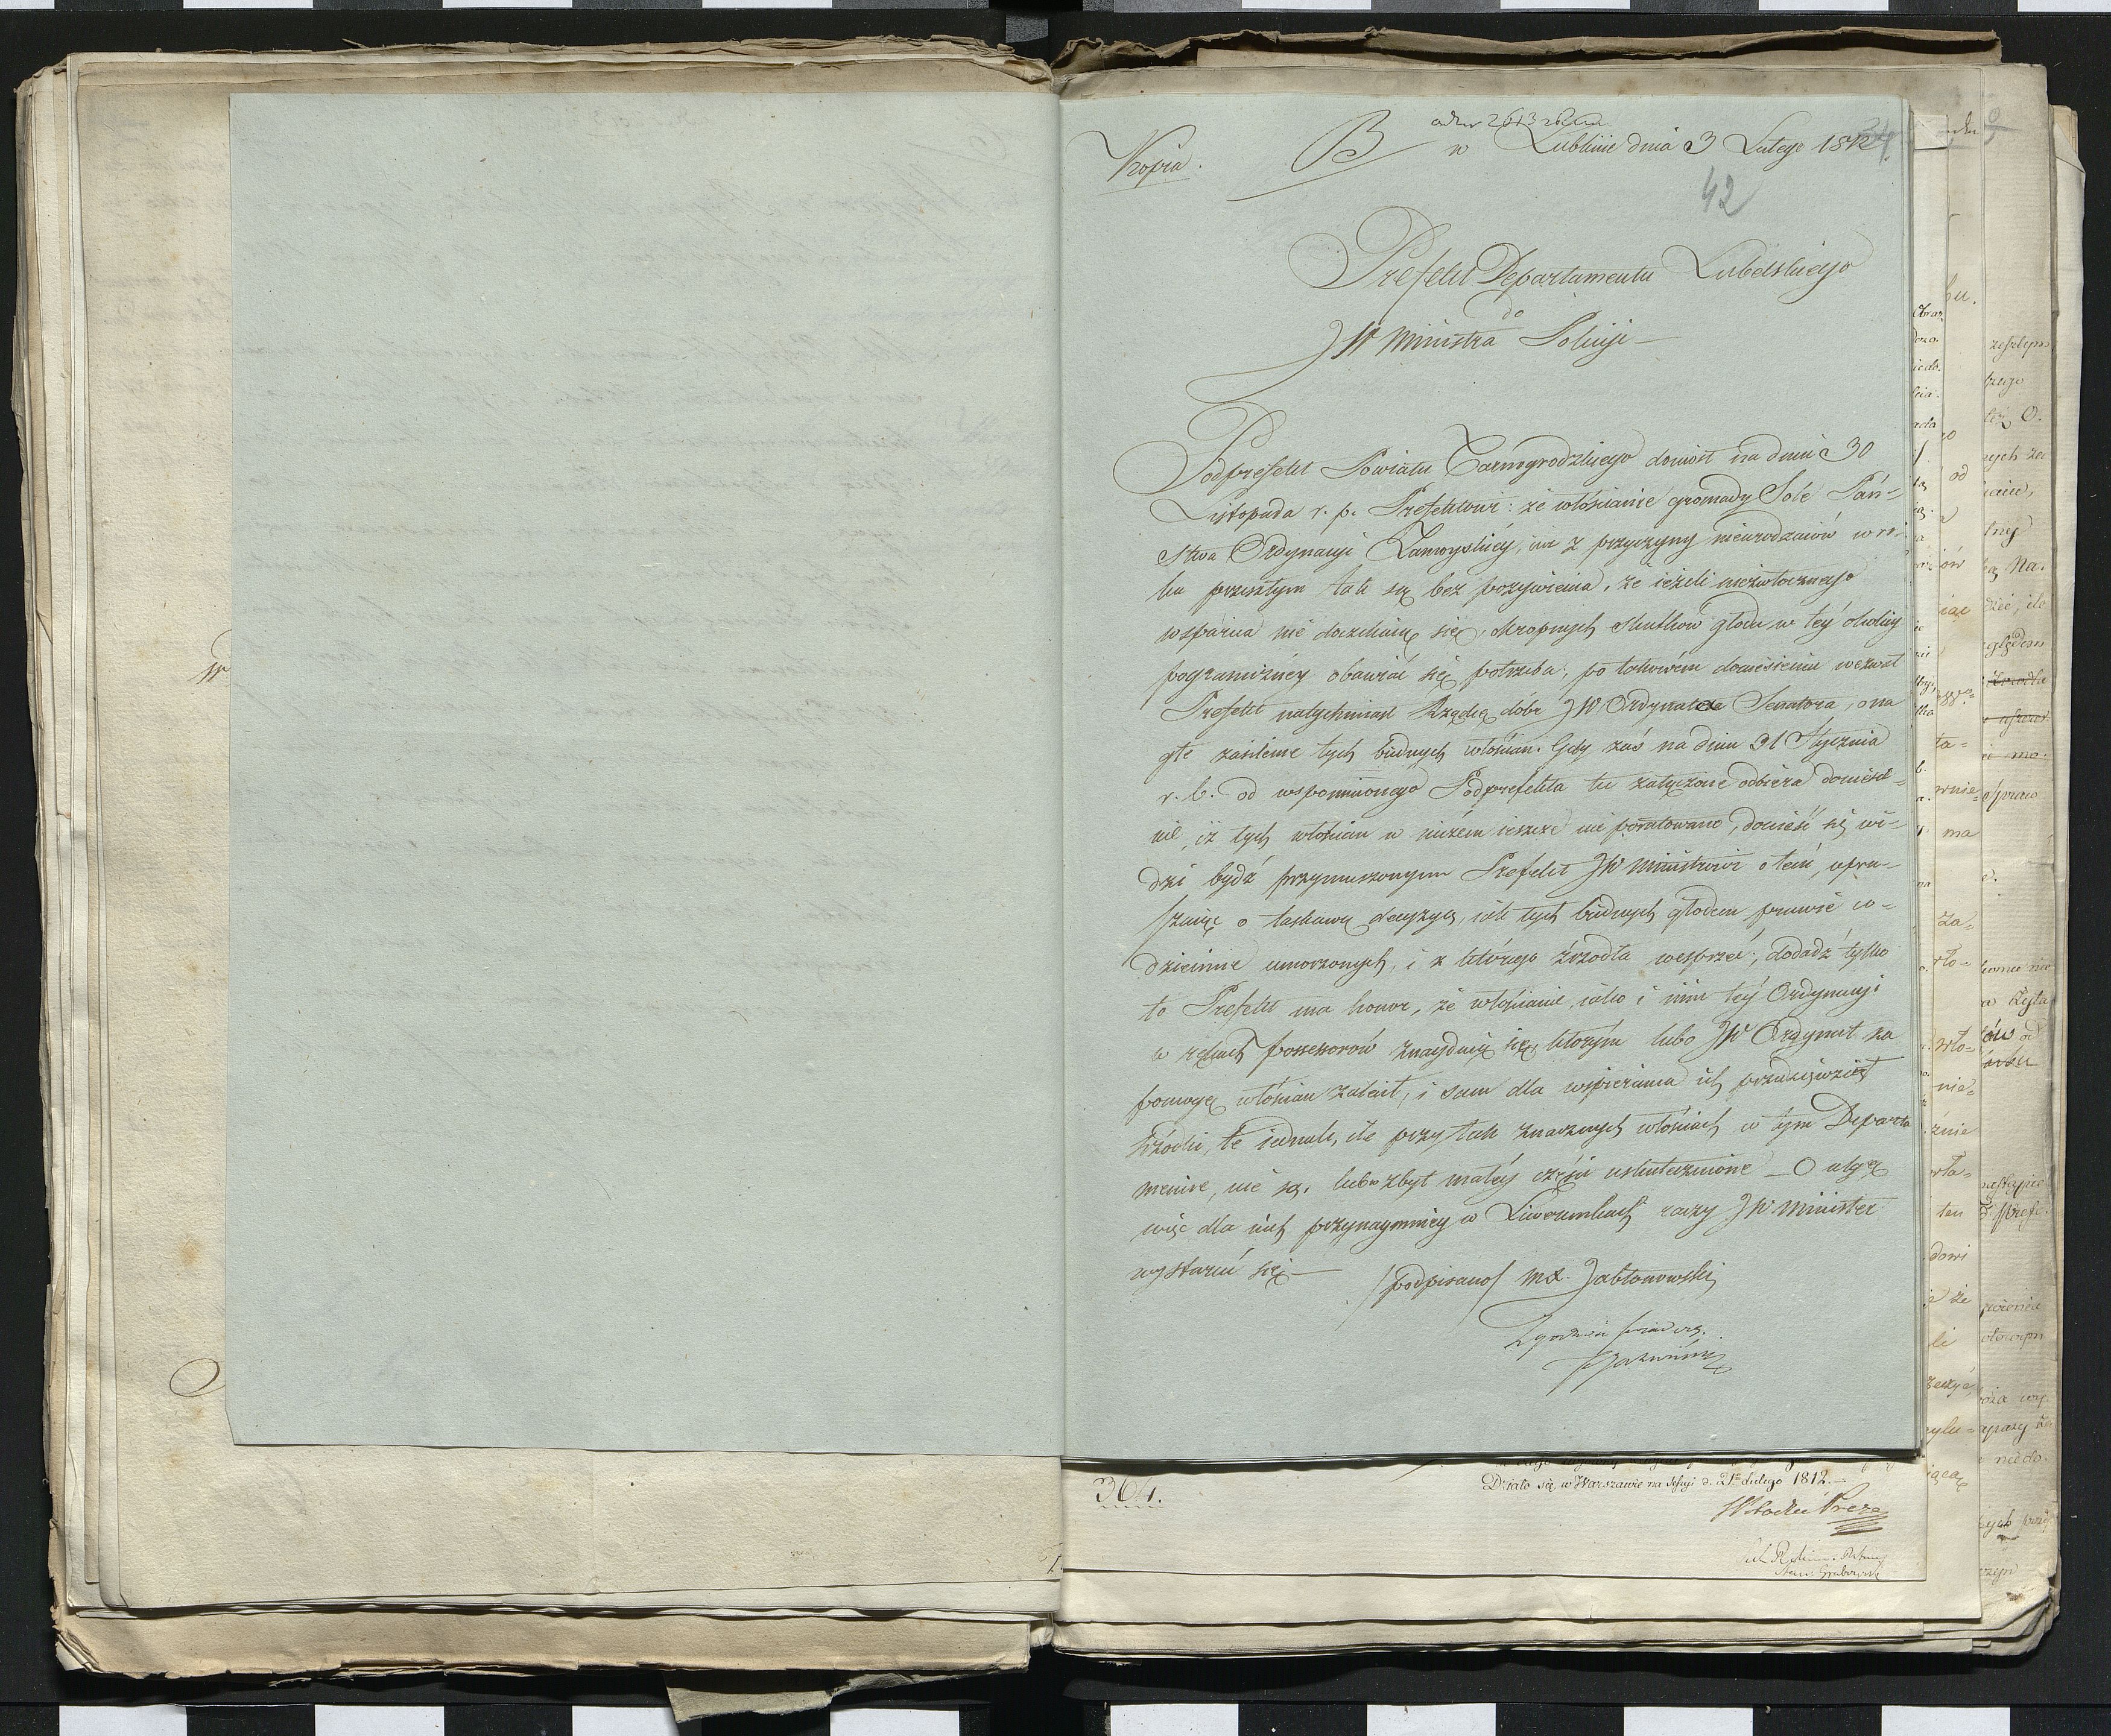 Kopia.
B
w Lublinie dnia 3 Lutego 1812
42
Prefekt Departamentu Lubelskiego
do
JW Ministra Policyi
Podprefekt Powiatu Tarnogrodzkiego doniósł na dniu 30
Listopada r. p. Prefektowi: że włościanie gromady Sole Pań-
stwa Ordynacyi Zamoyskiéy, są z przyczyny nieurodzaiów w ro-
ku przeszłym tak są bez pożywienia, że ieżeli niezwłocznego
wsparcia nie doczekaią się, okropnych skutków głodu w téy okolicy
pograniczney obawiać się potrzeba; po takowém doniesieniu wezwał
Prefekt natychmiast Rządcę dóbr JW Ordynata Senatora, o na
głe zasilenie tych biednych włościan. Gdy zaś na dniu 31 Stycznia
r. b. od wspomnionego Podprefekta tu załączone odbiera doniesie-
nie, iż tych włościan w niczém ieszcze nie poratowano, donieść się wi-
dzi bydź przymuszonym Prefekt JW Ministrowi o tém, upra-
szaiąc o łaskawą decyzyą, iak tych biednych głodem prawie co-
dziennie umorzonych, i z którego źrzodła wesprzeć; dodadź tylko
to Prefekt ma honor, że włościanie, iako i inni téy Ordynacyi
w rękach possessorów znayduią się, którym lubo JW Ordynat na
pomogę włościan zalecił, i sam dla wspierania ich przedsięwziął
śrzodki, te iednak, ile przy tak znacznych włościach w tym Departa
mencie, nie są, lub w zbyt małéy części uskutecznione _ O ulgę
więc dla nich przynaymniey w Liwerunkach raczy JW Minister
wystarać się —
/podpisano/ mx. Jabłonowski
Zgodność świadczę.
364.
Działo się w Warszawie na Sessyi d. 21º Lutego 1812.